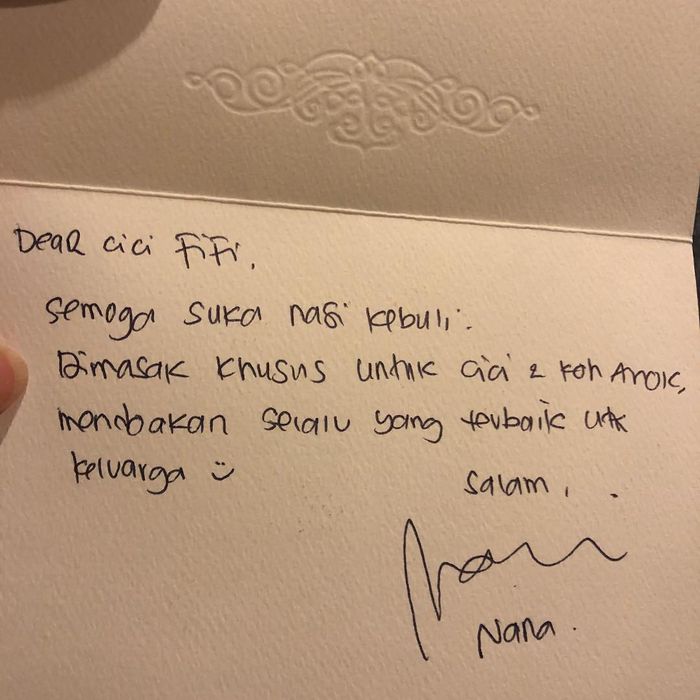 Dear cici Fifi,
semoga suka nasi kebuli.
Dimasak khusus untuk cici & koh Anok,
mendoakan selalu yang terbaik utk
keluarga :)
salam,
Nana.